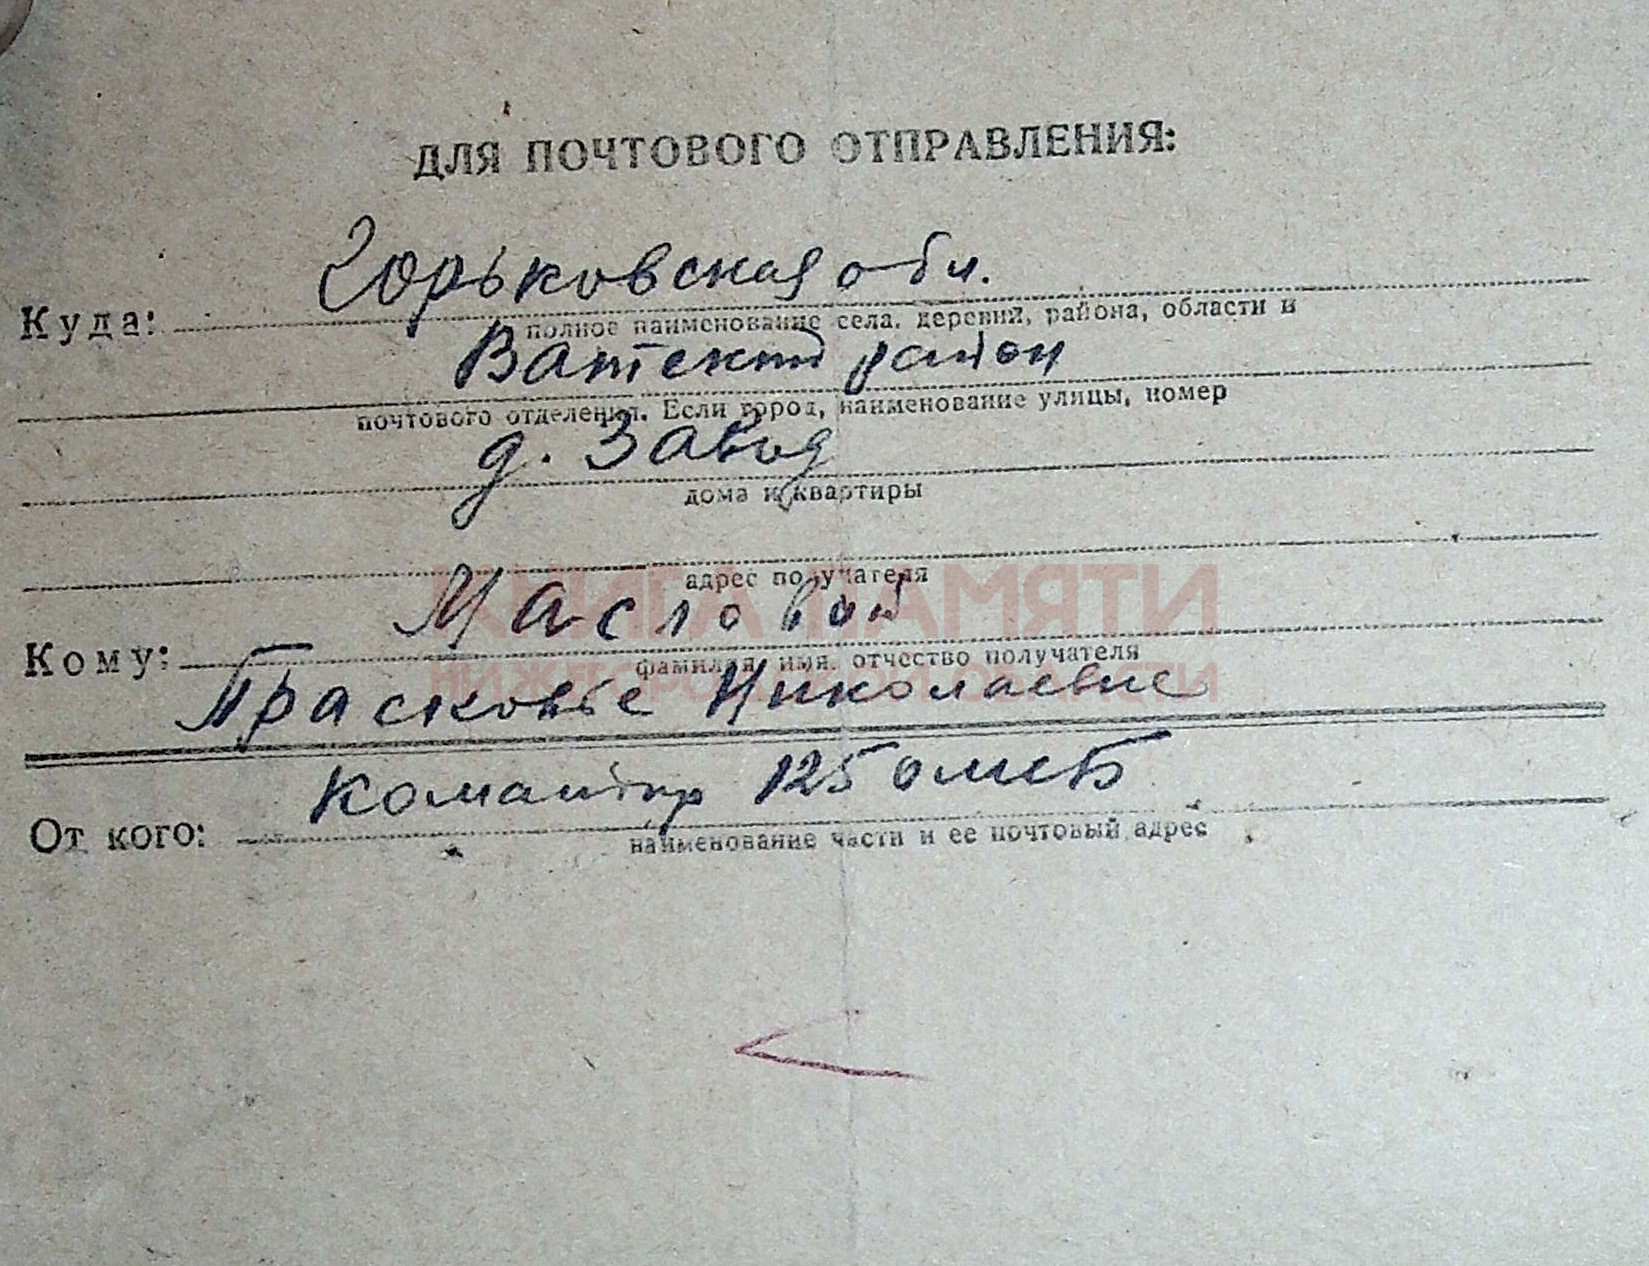 ДЛЯ ПОЧТОВОГО ОТПРАВЛЕНИЯ:
Куда: Горьковская обл.
полное наименование села, деревни, района, области и
Ватский район
почтового отделения. Если город, наименование улицы, номер
д. Завод
дома и квартиры
адрес получателя
Кому: Масловой
фамилия, имя, отчество получателя
Прасковье Николаевне
От кого: Командир 125 омсб
наименование части и ее почтовый адрес
КНИГА ПАМЯТИ
НИЖЕГОРОДСКОЙ ОБЛАСТИ